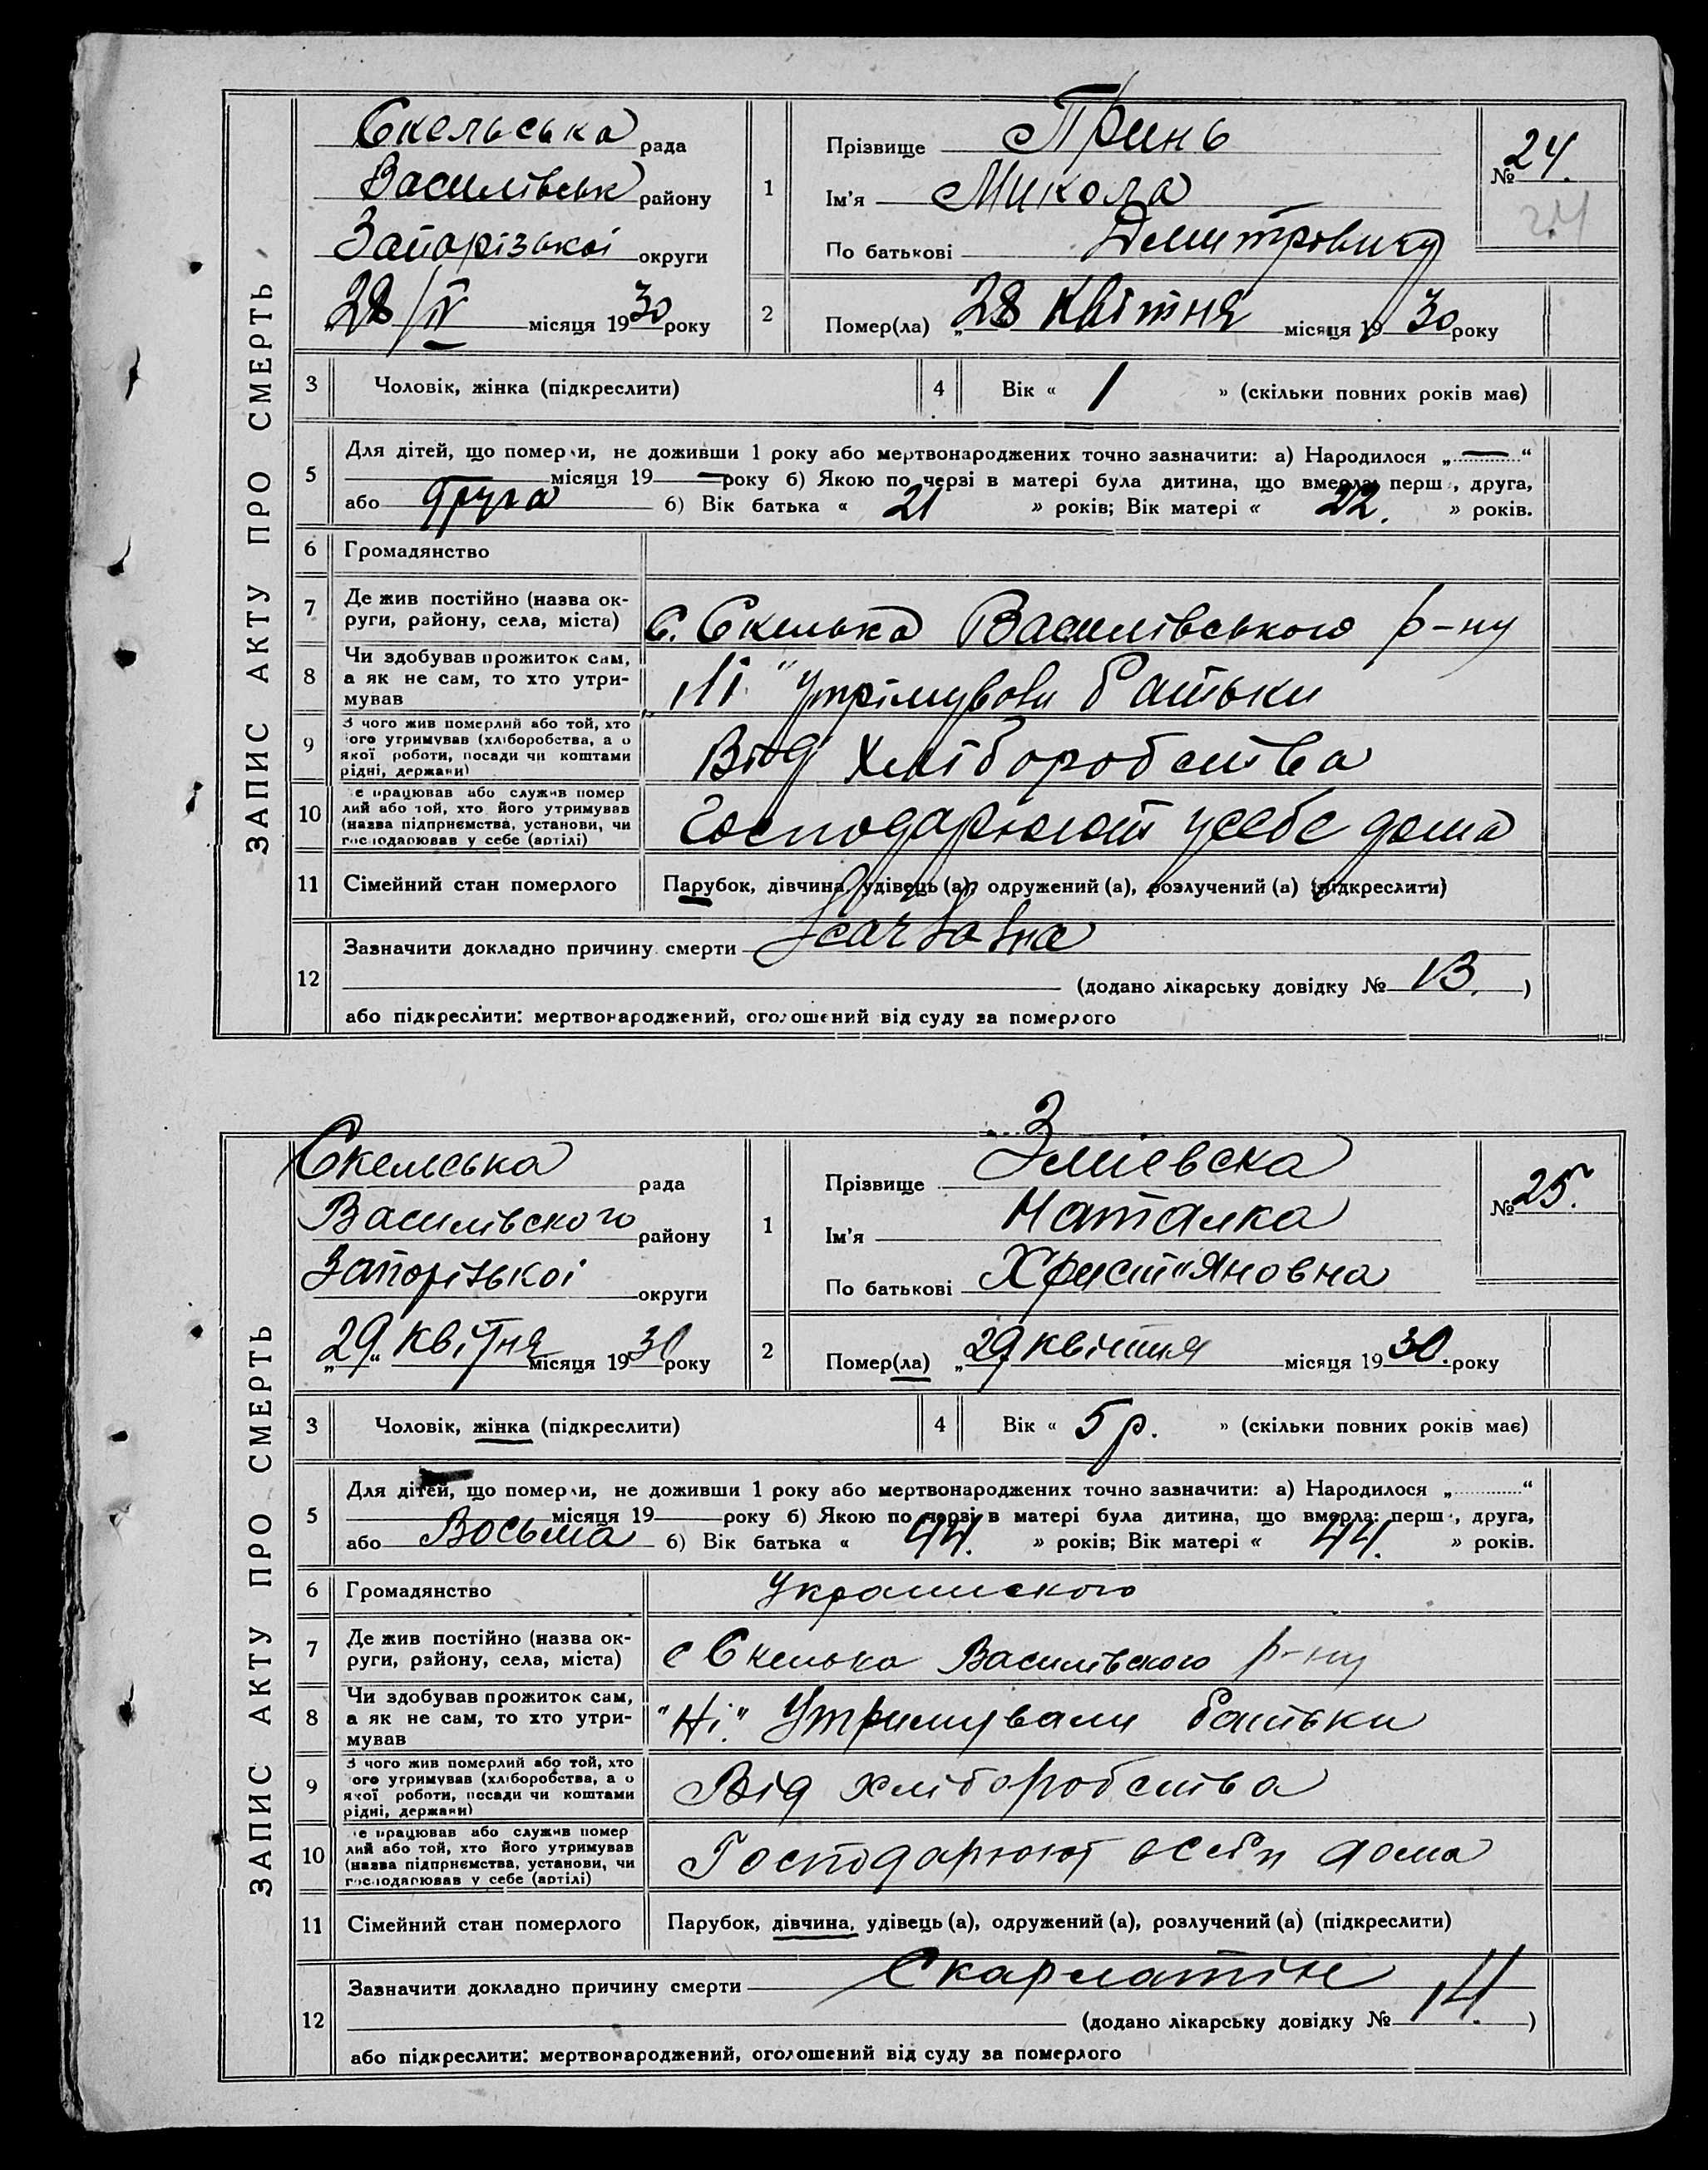 ЗАПИС АКТУ ПРО СМЕРТЬ
Скельська рада
Василівськ району
Запорізькоі округи
28/IV місяця 1930 року
1
Прізвище Принь
Ім'я Микола
По батькові Дмитровичу
№ 24.
24
2
Помер(ла) „28 квітня місяця 1930 року
3 Чоловік, жінка (підкреслити)
4 Вік « 1 » (скільки повних років має)
5
Для дітей, що померли, не доживши 1 року або мертвонароджених точно зазначити: а) Народилося „—“
місяця 19— року б) Якою по черзі в матері була дитина, що вмерла: перша, друга,
або друга б) Вік батька « 21 » років; Вік матері « 22. » років.
6 Громадянство
7 Де жив постійно (назва ок-
руги, району, села, міста)
с. Скелька Василівського р-ну
8 Чи здобував прожиток сам,
а як не сам, то хто утри-
мував
„Ні" утрімували батьки
9 З чого жив померлий або той, хто
його утримував (хліборобства, а о
якої роботи, посади чи коштами
рідні, держави)
Від хліборобства
10 е працював або служив помер
лий або той, хто його утримував
(назва підприємства, установи, чи
господарював у себе (артілі)
Господарюют усебе дома
11 Сімейний стан померлого
Парубок, дівчина, удівець (а), одружений (а), розлучений (а) (підкреслити)
12
Зазначити докладно причину смерти
(додано лікарську довідку № 13. )
або підкреслити: мертвонароджений, оголошений від суду за померлого
ЗАПИС АКТУ ПРО СМЕРТЬ
Скельська рада
Василівского району
Запорізькоі округи
„29“ квітня місяця 1930 року
1
З
Прізвище Зміевска
Ім'я Наталка
По батькові Христ"яновна
№ 25.
2
Помер(ла) „29 квітня місяця 1930. року
3 Чоловік, жінка (підкреслити)
4 Вік « 5 р. » (скільки повних років має)
5
Для дітей, що померли, не доживши 1 року або мертвонароджених точно зазначити: а) Народилося „ “
місяця 19 року б) Якою по черзі в матері була дитина, що вмерла: перша, друга,
або Восьма б) Вік батька « 44. » років; Вік матері « 44. » років.
6 Громадянство
Украинского
7 Де жив постійно (назва ок-
руги, району, села, міста)
с Скелька Василівского р-ну
8 Чи здобував прожиток сам,
а як не сам, то хто утри-
мував
"Ні." Утримували батьки
9 З чого жив померлий або той, хто
його утримував (хліборобства, а о
якої роботи, посади чи коштами
рідні, держави)
Від хліборобства
10 е працював або служив помер
лий або той, хто його утримував
(назва підприємства, установи, чи
господарював у себе (артілі)
Господарюют дома
11 Сімейний стан померлого
Парубок, дівчина, удівець (а), одружений (а), розлучений (а) (підкреслити)
12
Зазначити докладно причину смерти Скарлатін
(додано лікарську довідку № 14. )
або підкреслити: мертвонароджений, оголошений від суду за померлого